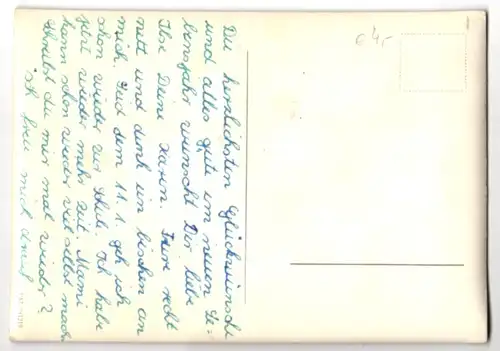 Die herzlichsten Glückwünsche
und alles gute im neuen Le=
bensjahr wünscht Dir liebe
Ilse Deine Karin. Feire recht
nett und denk ein bischen an
mich. Nach dem 11. 1. geh ich
schon wieder zur Schule. Ich habe
jetzt wieder mehr zeit. Mami
kann schon wieder viel selbst machen
Schreibst du mir mal wieder?
ich freu mich drauf
64,-